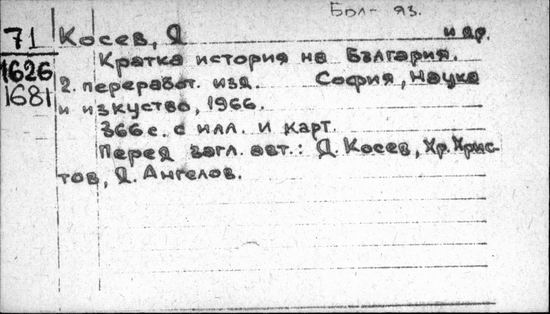 Бол- яз.
71 Косев, Д и др.
1626 Кратка история на България.
1681 2. переработ. изд. София, Наука
и изкуство, 1966.
366 с. с илл. и карт.
Перед загл. авт.: Д. Косев, Хр. Хрис-
тов, Д. Ангелов.